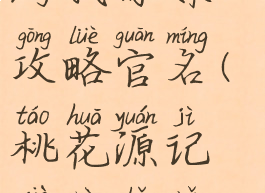 gōng lüè guān míng
攻略官名(
táo huā yuán jì
桃花源记